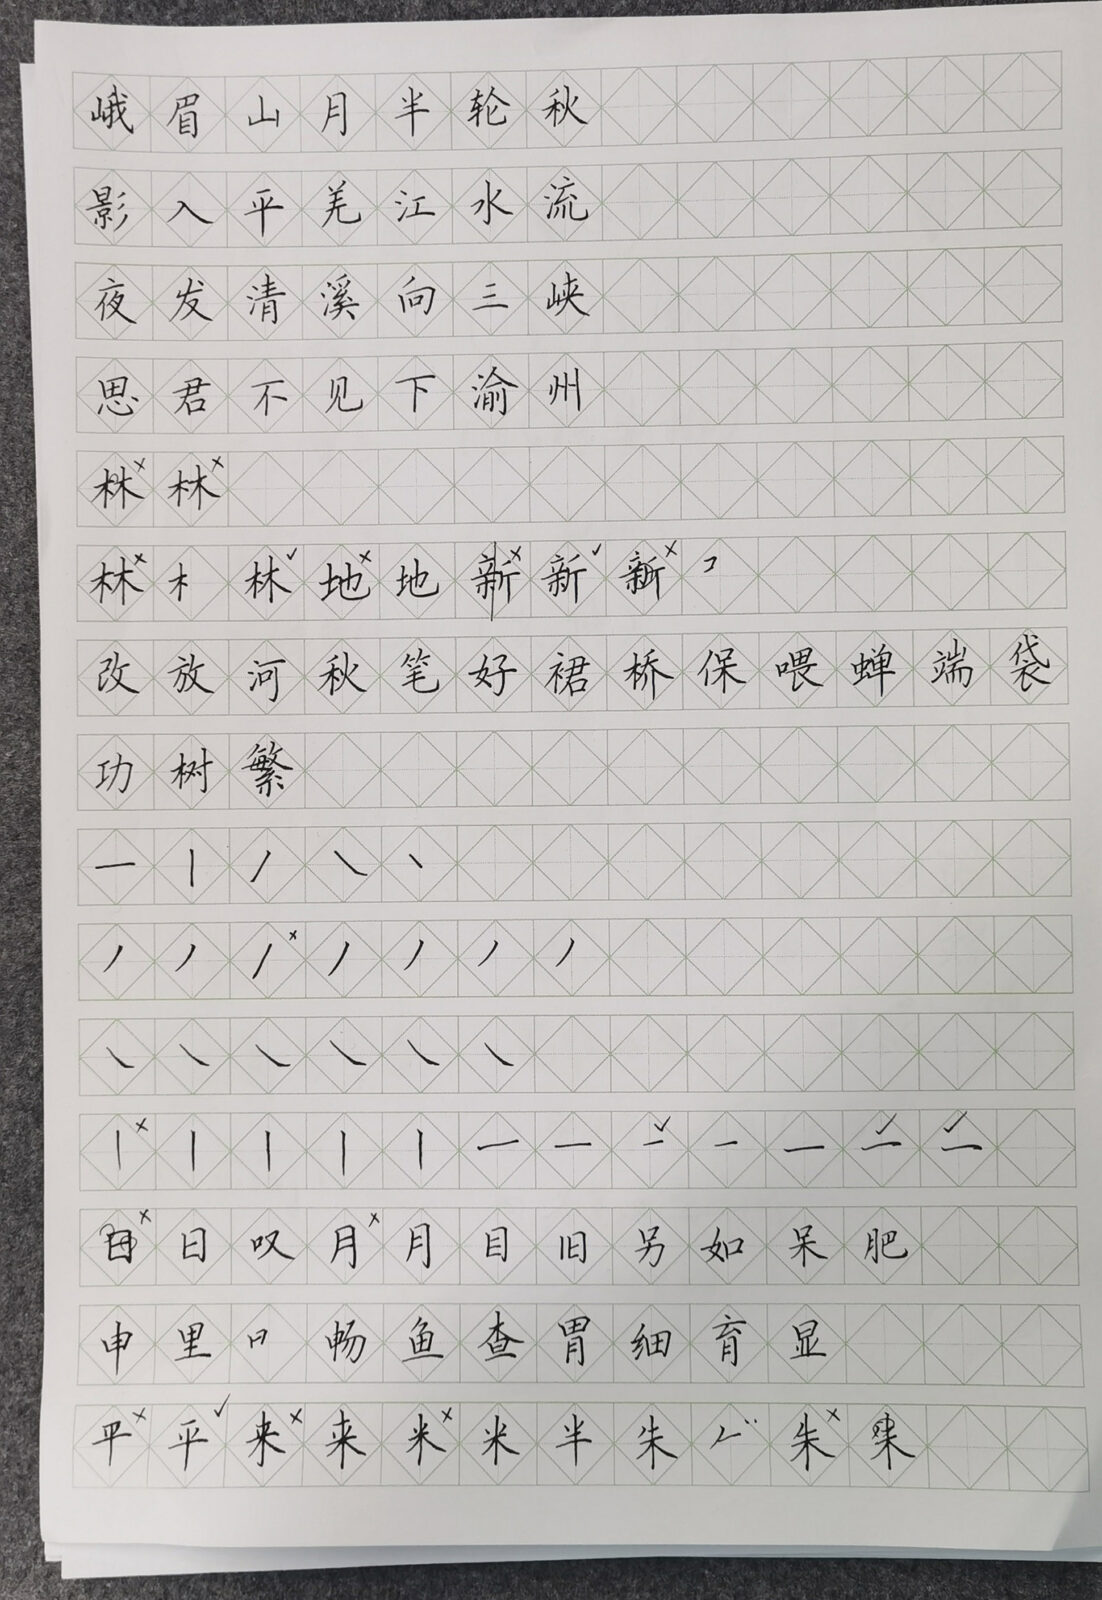 峨眉山月半轮秋
影入平羌江水流
夜发清溪向三峡
思君不见下渝州
林× 林×
林× 木 林✓ 地× 地 新× 新✓ 新×
改放河秋笔好裙桥保喂蝉端袋
功树繁
一丨丿㇏丶
丿丿丿×丿丿丿丿
㇏㇏㇏㇏㇏㇏
丨×丨丨丨丨一一一✓一一一✓一✓
日× 日 叹 月× 月 目 旧 另 如 呆 肥
申里畅鱼查胃细育显
平× 平✓ 来× 来 米× 米 半 朱 朱×